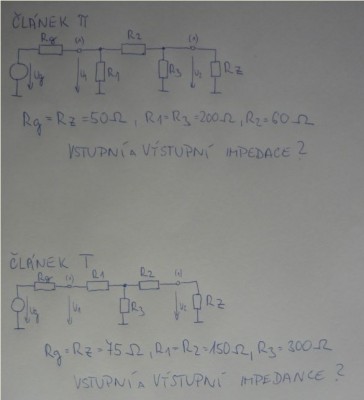 ČLÁNEK π
Rg (1) R2 (2)
Ug U1 R1 R3 U2 Rz
Rg = Rz = 50Ω, R1 = R3 = 200Ω, R2 = 60Ω
VSTUPNÍ A VÝSTUPNÍ IMPEDACE ?
ČLÁNEK T
Rg (1) R1 R2 (2)
Ug U1 R3 U2 Rz
Rg = Rz = 75Ω, R1 = R2 = 150Ω, R3 = 300Ω
VSTUPNÍ A VÝSTUPNÍ IMPEDANCE ?